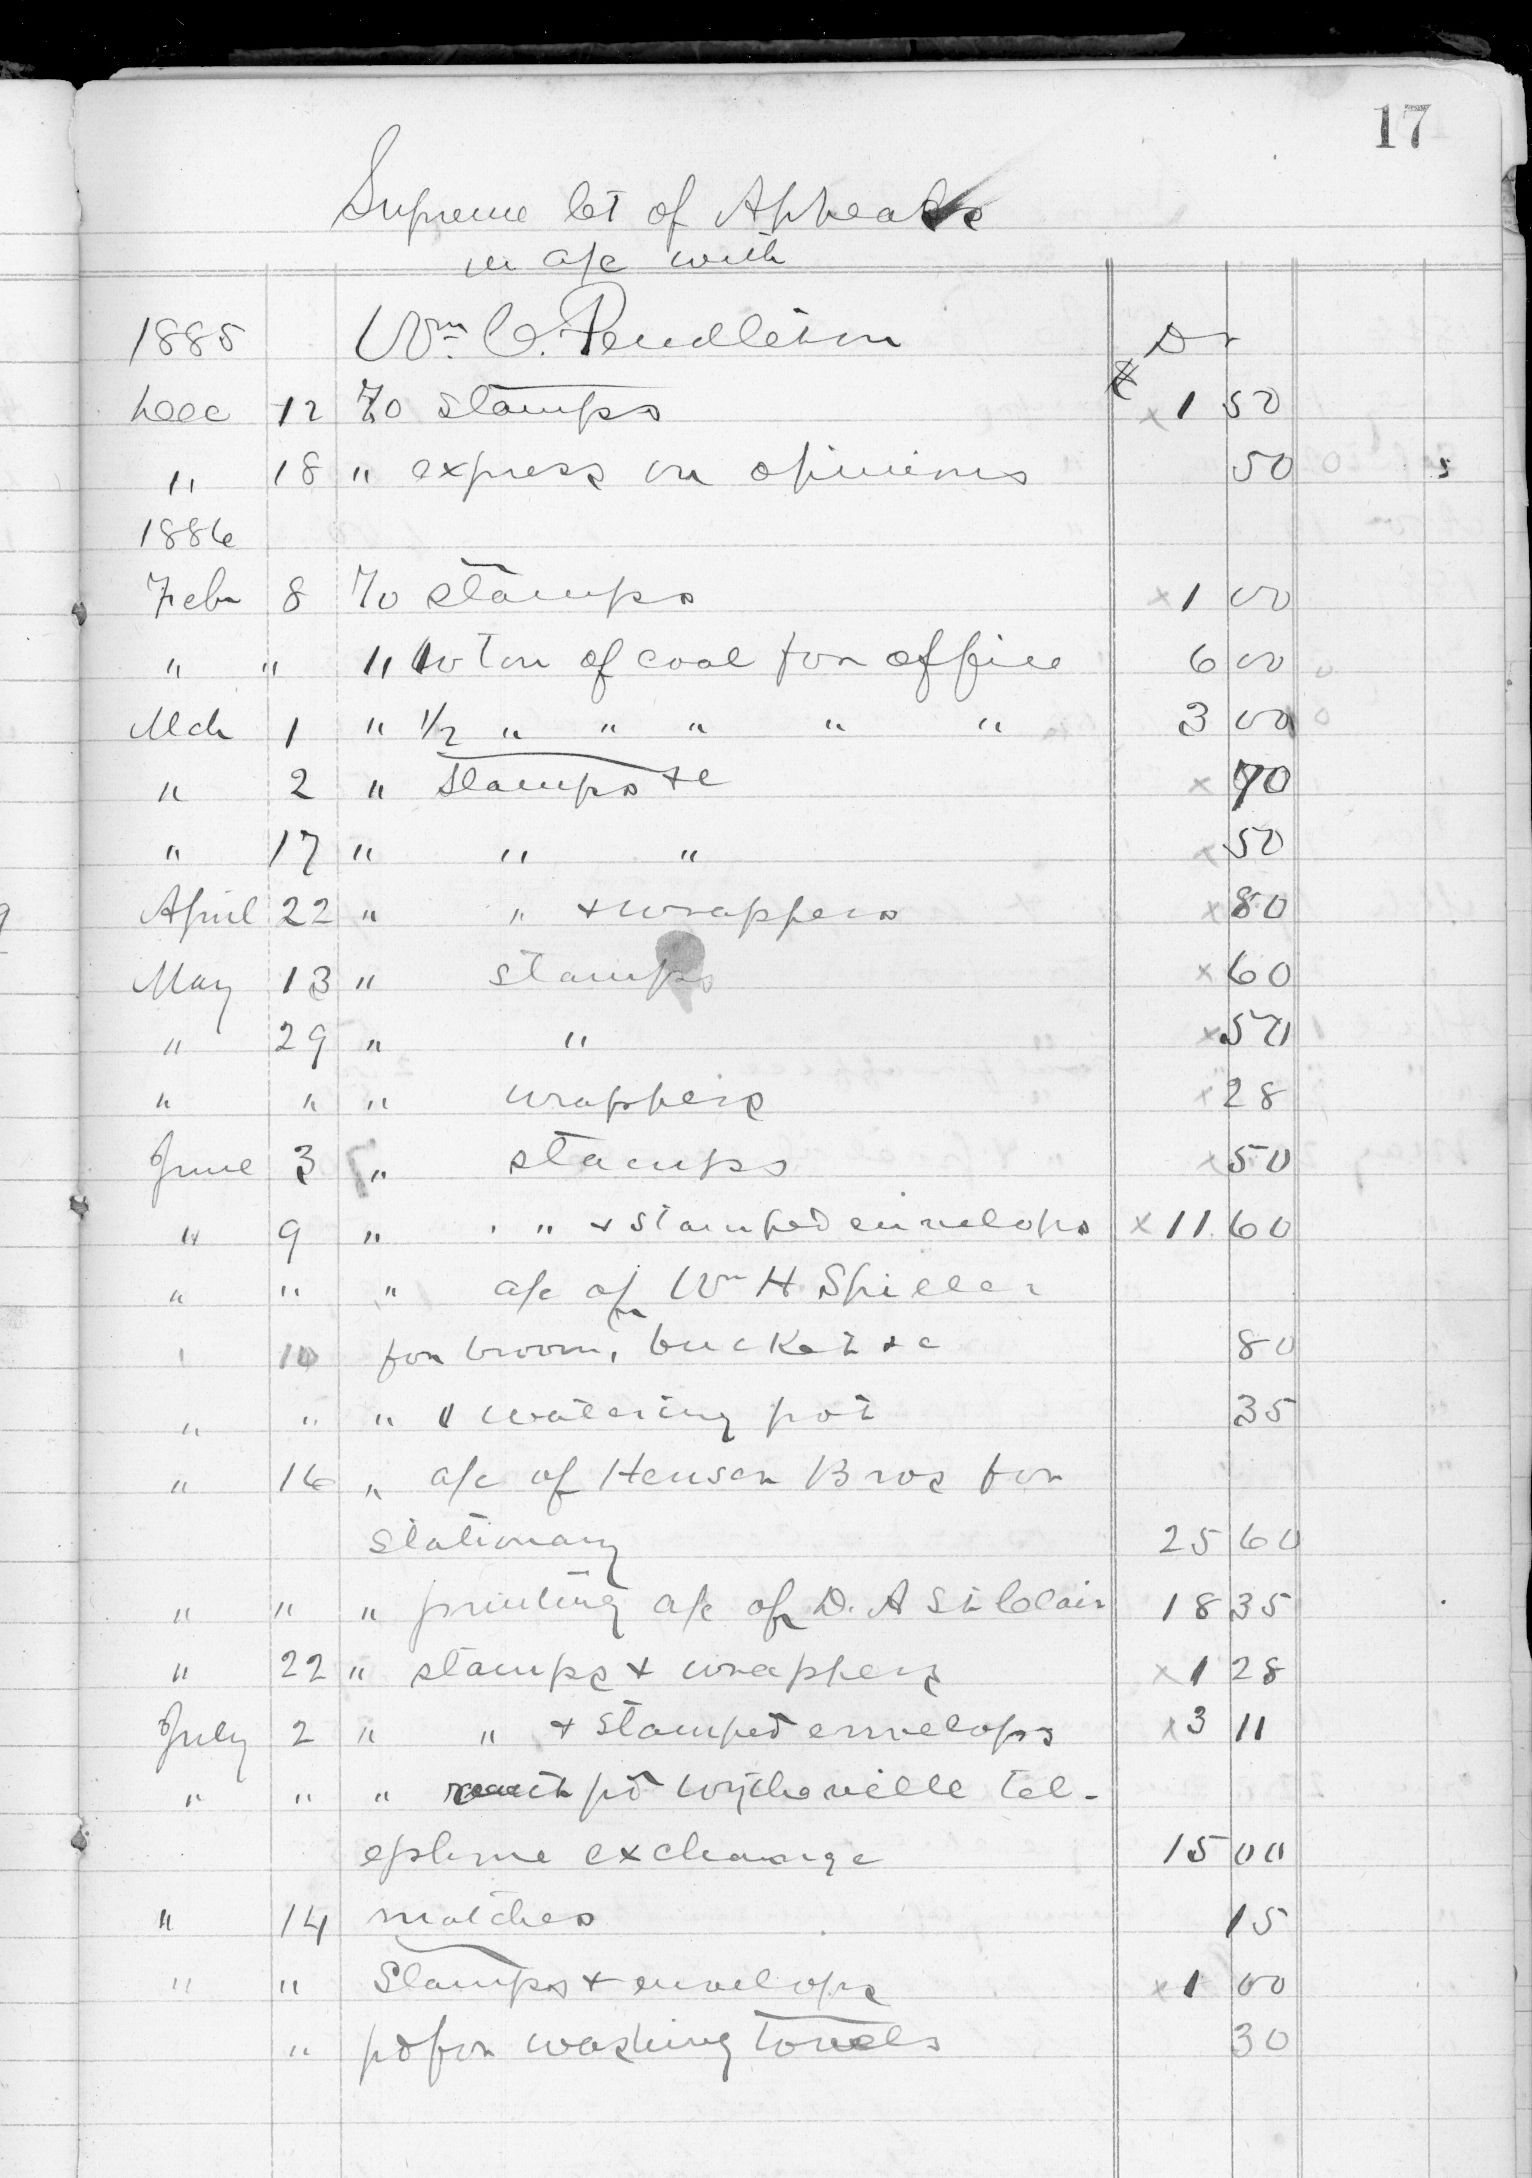 17
Supreme Ct of Appeals
in a/c with
1885 Wm. C. Pendleton Dr
Dec 12 To stamps x 1 50
" 18 " express on opinions 50
1886
Feby 8 To stamps x 1 00
" " " to ton of coal for office 6 00
Mch 1 " 1/2 " " " " " 3 00
" 2 " Stamps &c x 70
" 17 " " " x 50
April 22 " " & wrappers x 80
May 13 " stamps x 60
" 29 " " x 50
" " " wrappers x 28
June 3 " stamps x 50
" 9 " " & stamped envelops x 11 60
" " " a/c of Wm H Spiller
" 10 for broom, bucket &c 80
" " " " watering pot 35
" 16 " a/c of Heuser Bros for
stationary 25 60
" " " printing a/c of D. A St Clair 18 35
" 22 " stamps & wrappers x 1 28
July 2 " " & stamped envelops x 3 11
" " " pd Wytheville tel-
ephone exchange 15 00
" 14 matches 15
" " Stamps & envelops x 1 00
" pd for washing towels 30